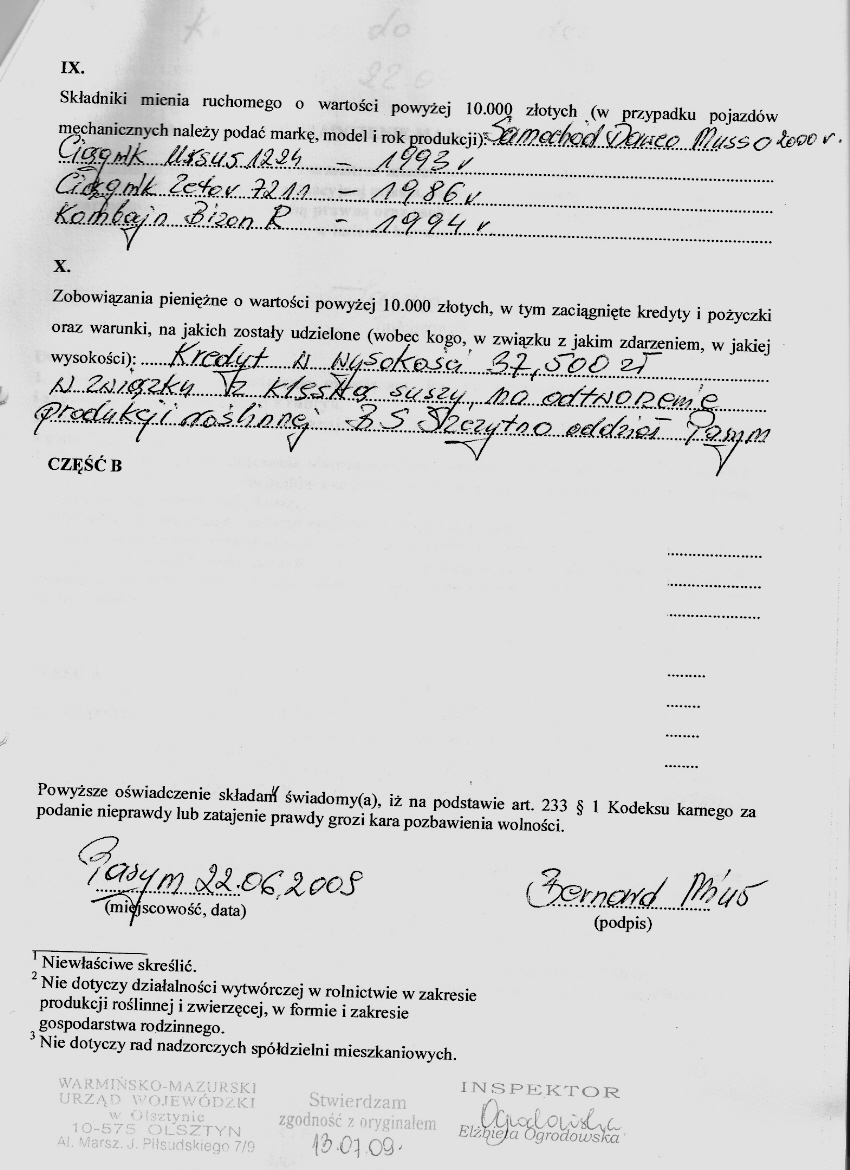 IX.
Składniki mienia ruchomego o wartości powyżej 10.000 złotych (w przypadku pojazdów
mechanicznych należy podać markę, model i rok produkcji): Samochód Daweo Musso 2000 r.
Ciągnik Ursus 1224 – 1993 r
Ciągnik Zetor 7211 – 1986 r
Kombajn Bizon R – 1994 r
X.
Zobowiązania pieniężne o wartości powyżej 10.000 złotych, w tym zaciągnięte kredyty i pożyczki
oraz warunki, na jakich zostały udzielone (wobec kogo, w związku z jakim zdarzeniem, w jakiej
wysokości): Kredyt w wysokości 37,500 zł
w związku z klęską suszy, na odtworzenie
produkcji roślinnej BS Szczytno oddział Pasym
CZĘŚĆ B
Powyższe oświadczenie składam świadomy(a), iż na podstawie art. 233 § 1 Kodeksu karnego za
podanie nieprawdy lub zatajenie prawdy grozi kara pozbawienia wolności.
Pasym 22.06.2009 Bernard Mius
(miejscowość, data) (podpis)
1 Niewłaściwe skreślić.
2 Nie dotyczy działalności wytwórczej w rolnictwie w zakresie
produkcji roślinnej i zwierzęcej, w formie i zakresie
gospodarstwa rodzinnego.
3 Nie dotyczy rad nadzorczych spółdzielni mieszkaniowych.
WARMIŃSKO-MAZURSKI
URZĄD WOJEWÓDZKI
w Olsztynie
10-575 OLSZTYN
Al. Marsz. J. Piłsudskiego 7/9
Stwierdzam
zgodność z oryginałem
13.07.09.
INSPEKTOR
Ogrodowska
Elżbieta Ogrodowska